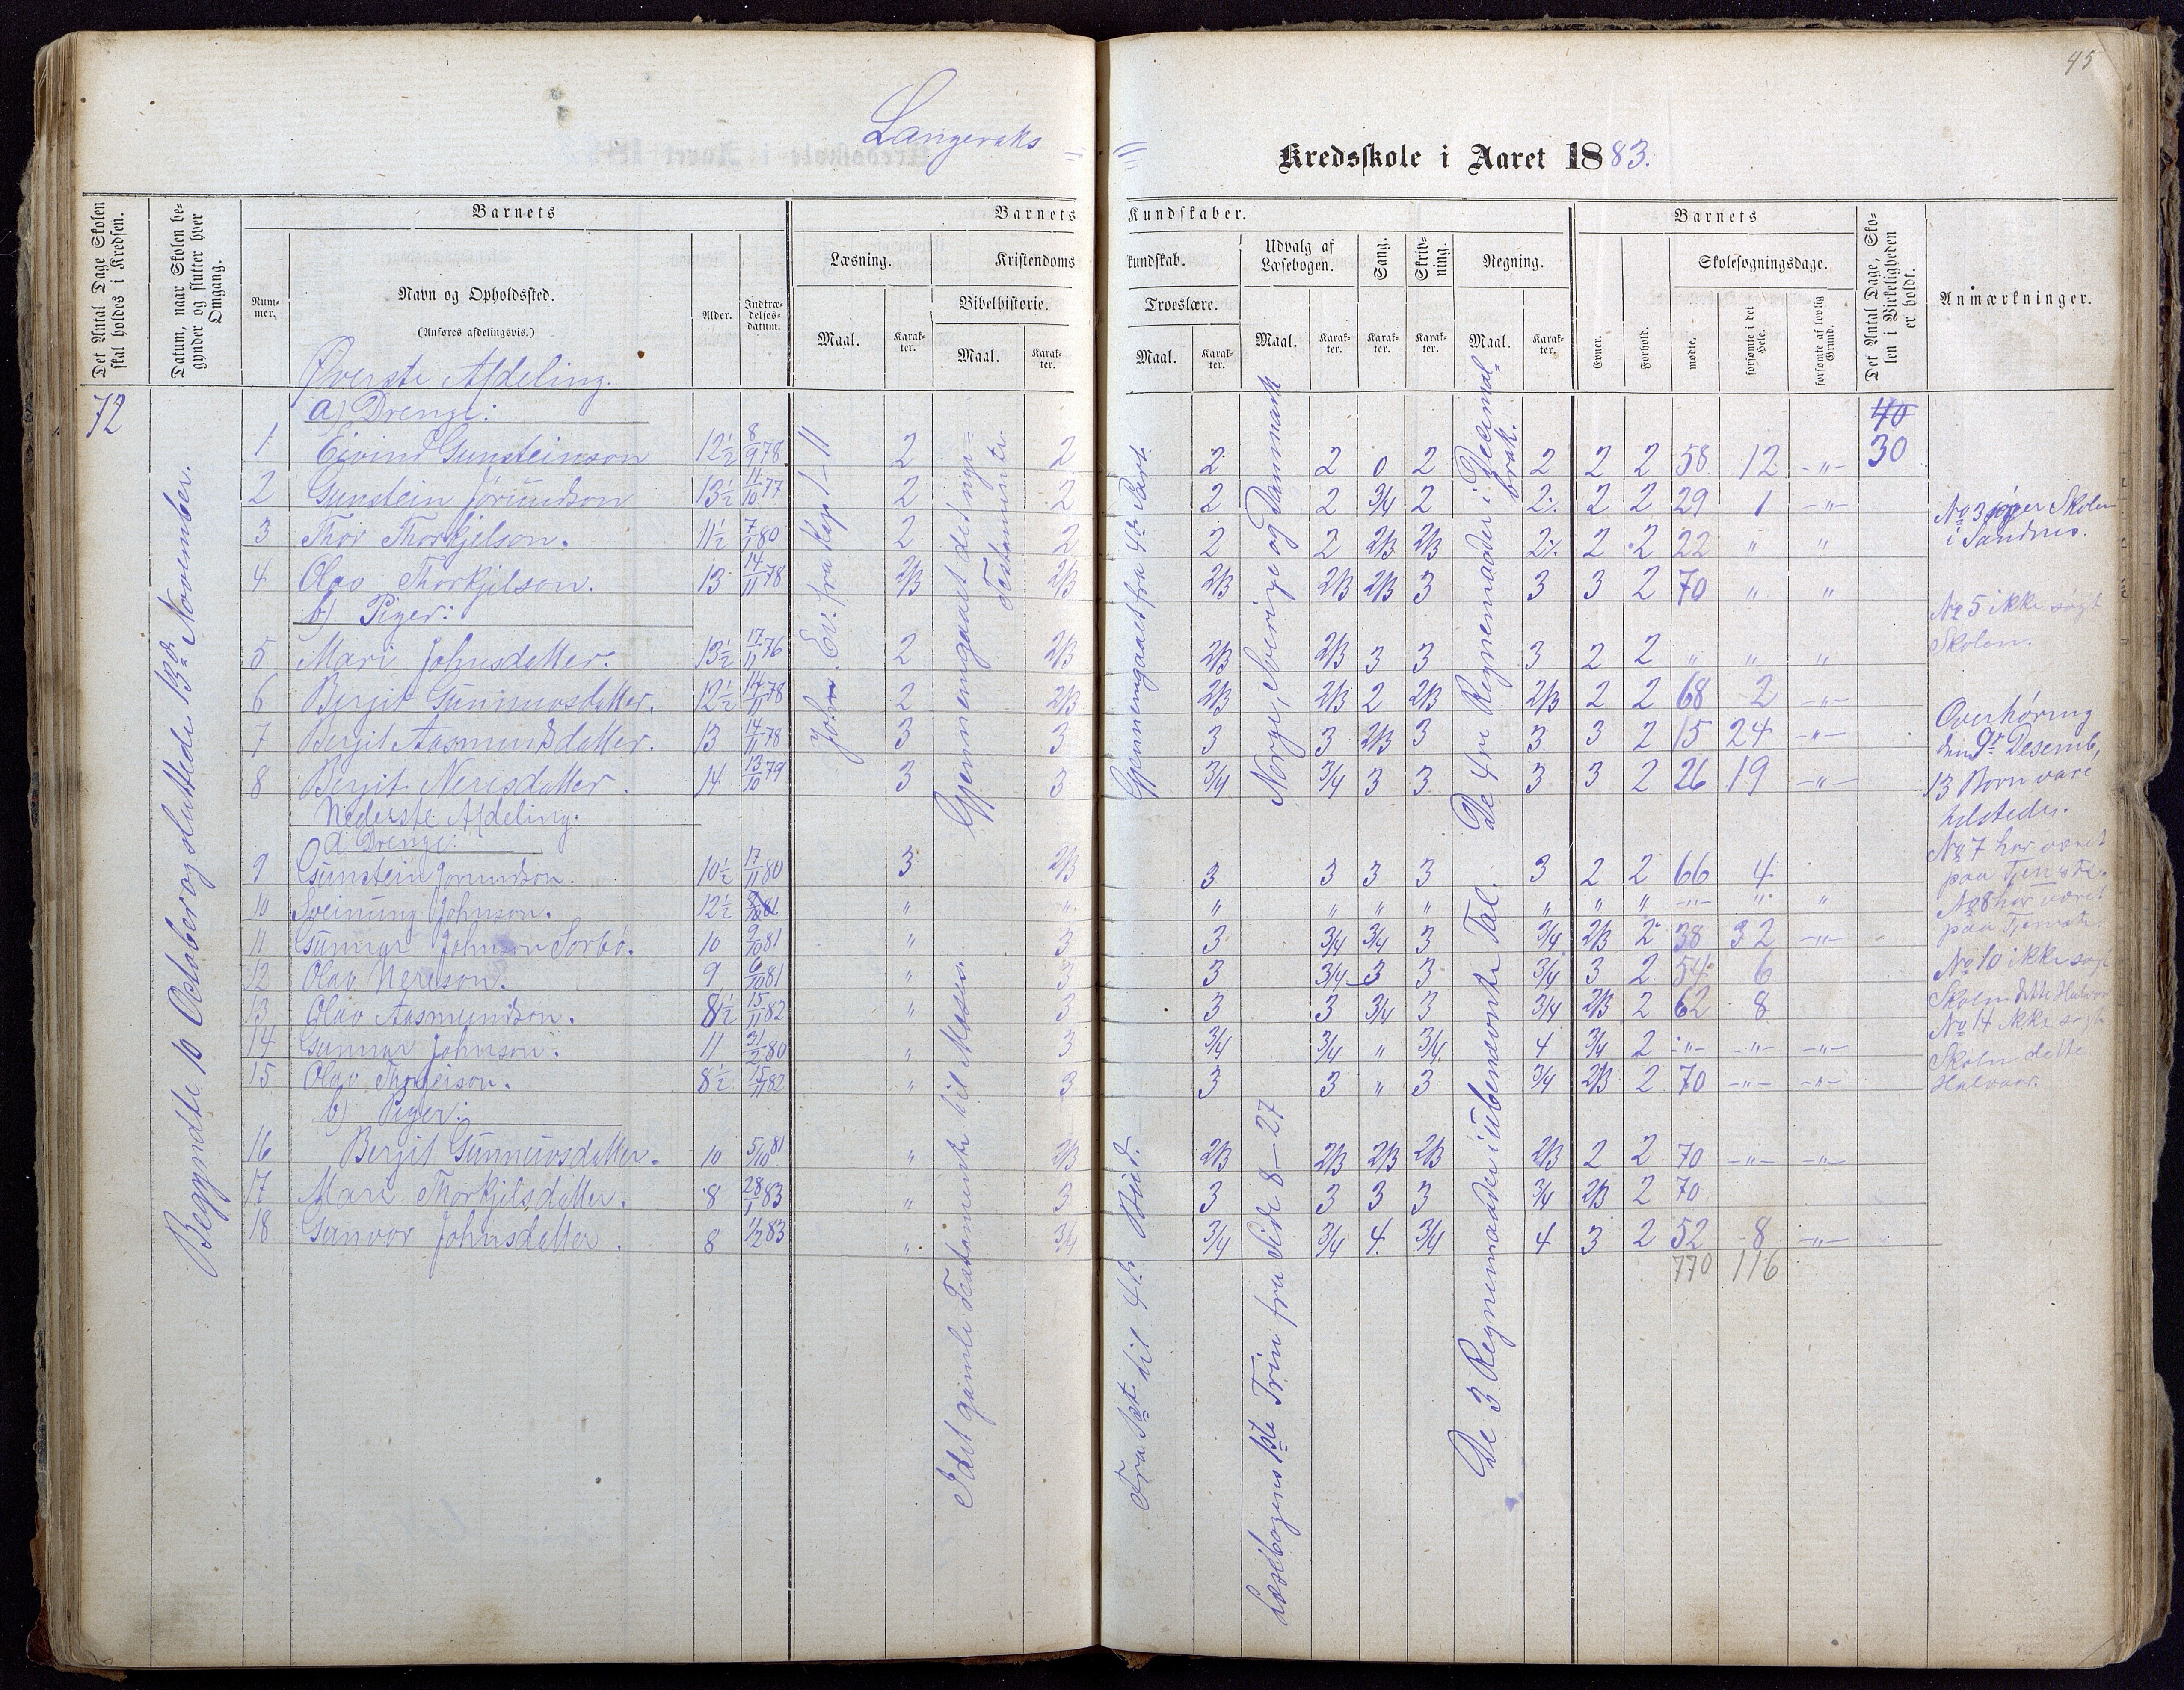 45
Langeraks =
" Kredsskole i Aaret 1883.
Det Antal Dage Skolen skal holdes i Kredsen.
Datum, naar Skolen begynder og slutter hver Omgang.
Barnets
Barnets Kundskaber.
Barnets
Det Antal Dage, Skolen i Virkeligheden er holdt.
Anmærkninger.
Nummer.
Navn og Opholdssted.
(Anføres afdelingsvis.)
Alder.
Indtrædelsesdatum.
Læsning.
Kristendomskundskab.
Udvalg af Læsebogen.
Sang.
Skrivning.
Regning.
Evner.
Forhold.
Skolesøgningsdage.
Bibelhistorie.
Troeslære.
Maal.
Karakter.
Maal.
Karakter.
Maal.
Karakter.
Maal.
Karakter.
Karakter.
Karakter.
Maal.
Karakter.
mødte.
forsømte i det Hele.
forsømte af lovlig Grund.
72
Begyndte 10 October og sluttede 13de November.
Øverste Afdeling.
a) Drenge:
40
30
1 Eivind Gunsteinson 12½ 8/9 78 2 2 2 2 0 2 2 2 2 58 12 -"-
2 Gunstein Jørundson 13½ 11/10 77 2 2 2 2 3/4 2 2 2 2 29 1 -"-
3 Thor Thorkjelson. 11½ 7/1 80 2 2 2 2 2/3 2/3 2 2 2 22 " "
4 Olav Thorkjelson. 13 14/11 78 2/3 2/3 2/3 2/3 2/3 3 3 3 2 70 " "
b) Piger:
5 Mari Johnsdatter. 13½ 17/11 76 2 2/3 2/3 2/3 3 3 3 2 2 " " "
6 Bergit Gunnuvsdatter. 12½ 14/11 78 2 2/3 2/3 2/3 2 2/3 2/3 2 2 68 2 -"-
7 Bergit Aasmundsdatter. 13 14/11 78 3 3 3 3 2/3 3 3 3 2 15 24 -"-
8 Bergit Neresdatter. 14 13/10 79 3 3 3/4 3/4 3 3 3 3 2 26 19 -"-
Nederste Afdeling.
a) Drenge:
9 Gunstein Jorundson. 10½ 17/11 80 3 2/3 3 3 3 3 3 2 2 66 4
10 Sveinung Johnson. 12½ " " " " " " " " " -"- " "
11 Gunnar Johnson Sorbø. 10 9/10 81 " 3 3 3/4 3/4 3 3/4 2/3 2 38 32 -"-
12 Olav Nereson. 9 6/10 81 " 3 3 3/4 3 3 3/4 3 2 54 6
13 Olav Aasmundson. 8½ 15/11 82 " 3 3 3 3/4 3 3/4 2/3 2 62 8
14 Gunnar Johnson. 11 3/2 80 " 3 3/4 3/4 " 3/4 4 3/4 2 -"- -"- -"-
15 Olav 8½ 15/11 82 " 3 3 3 " 3 3/4 2/3 2 70 -"- -"-
b) Piger:
16 Bergit Gunnuvsdatter. 10 5/10 81 " 2/3 2/3 2/3 2/3 2/3 2/3 2 2 70 -"- -"-
17 Mari Thorkjelsdatter. 8 28/1 83 " 3 3 3 3 3 3/4 2/3 2 70
18 Gunvor Johnsdatter. 8 1/2 83 " 3/4 3/4 3/4 4. 3/4 4 3 2 52 8 -"-
770 116
Johs. Ev: fra Kap 1–11
Gjennemgaaet det nye Testamente.
I det gamle Testamente til Moses.
Gjennemgaaet fra 4de Part.
Fra 1ste til 4de Bud.
Norge, Sverige og Danmark
Læsebogens 1ste Trin fra Side 8–27
De 4re Regnemaader i Decimalbrøk.
De 3 Regnemaader i ubenævnte Tal.
No 3 søger Skolen
i Sandnes.
No 5 ikke søgt
Skolen.
Overhøring
den 9de Desemb,
13 Børn vare
tilstede.
No 7 har været
paa Tjeneste.
No 8 har været
paa Tjeneste.
No 10 ikke søgt
Skolen dette Halvaar
No 14 ikke søgt
Skolen dette
Halvaar.